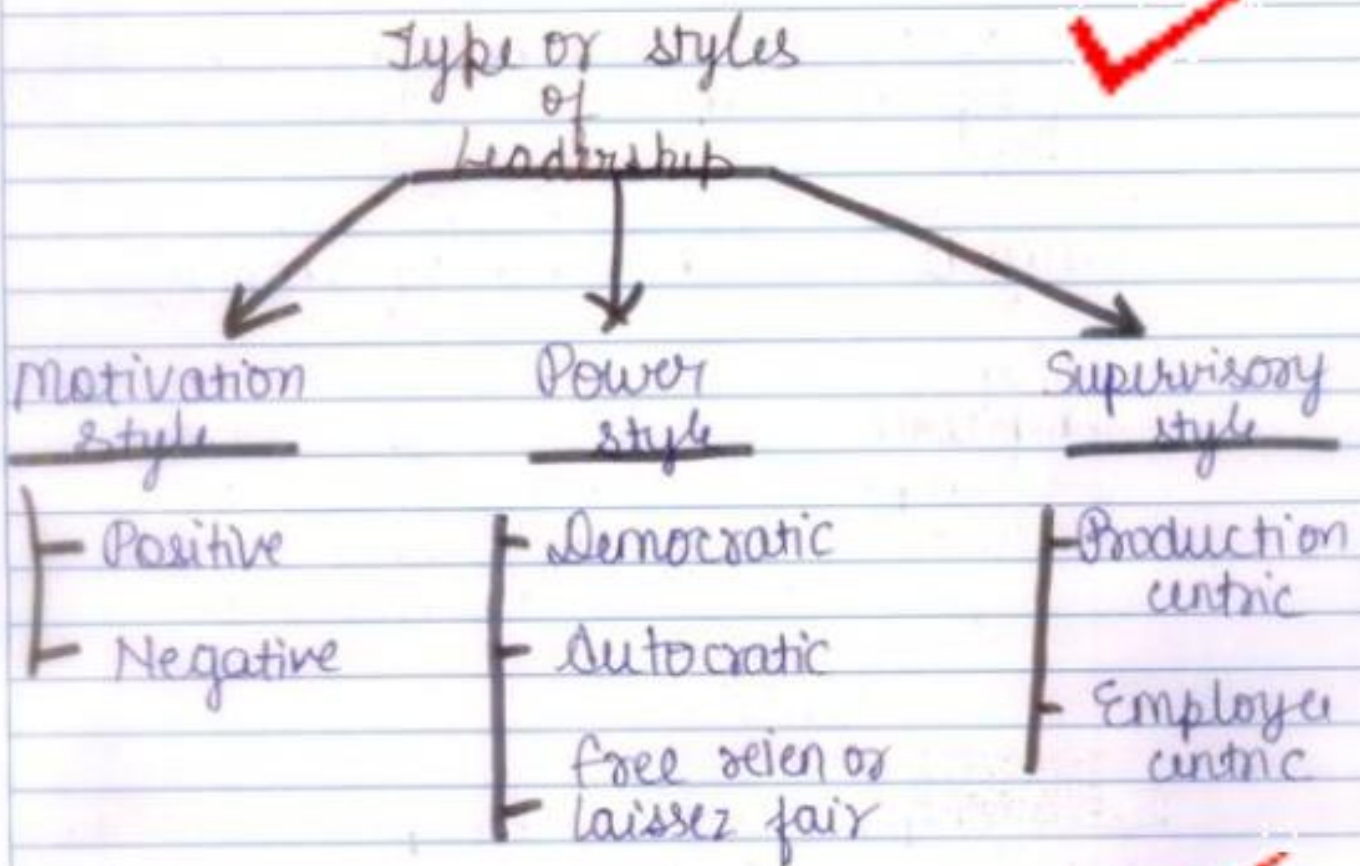 Type or styles
of
Leadership
Motivation
style
Positive
Negative
Power
style
Democratic
Autocratic
free reien or
laissez fair
Supervisory
style
Production
centric
Employee
centric